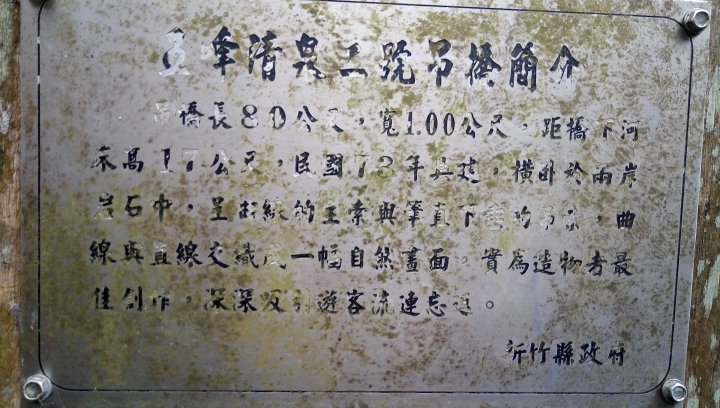 五峰清泉二號吊橋簡介
吊橋長80公尺，寬1.00公尺，距橋下河
床高17公尺，民國73年興建，橫卧於兩岸
岩石中，呈拋線的主索與筆直下垂的吊索，曲
線與直線交織成一幅自然畫面，實為造物者最
佳創作，深深吸引遊客流連忘返。
新竹縣政府